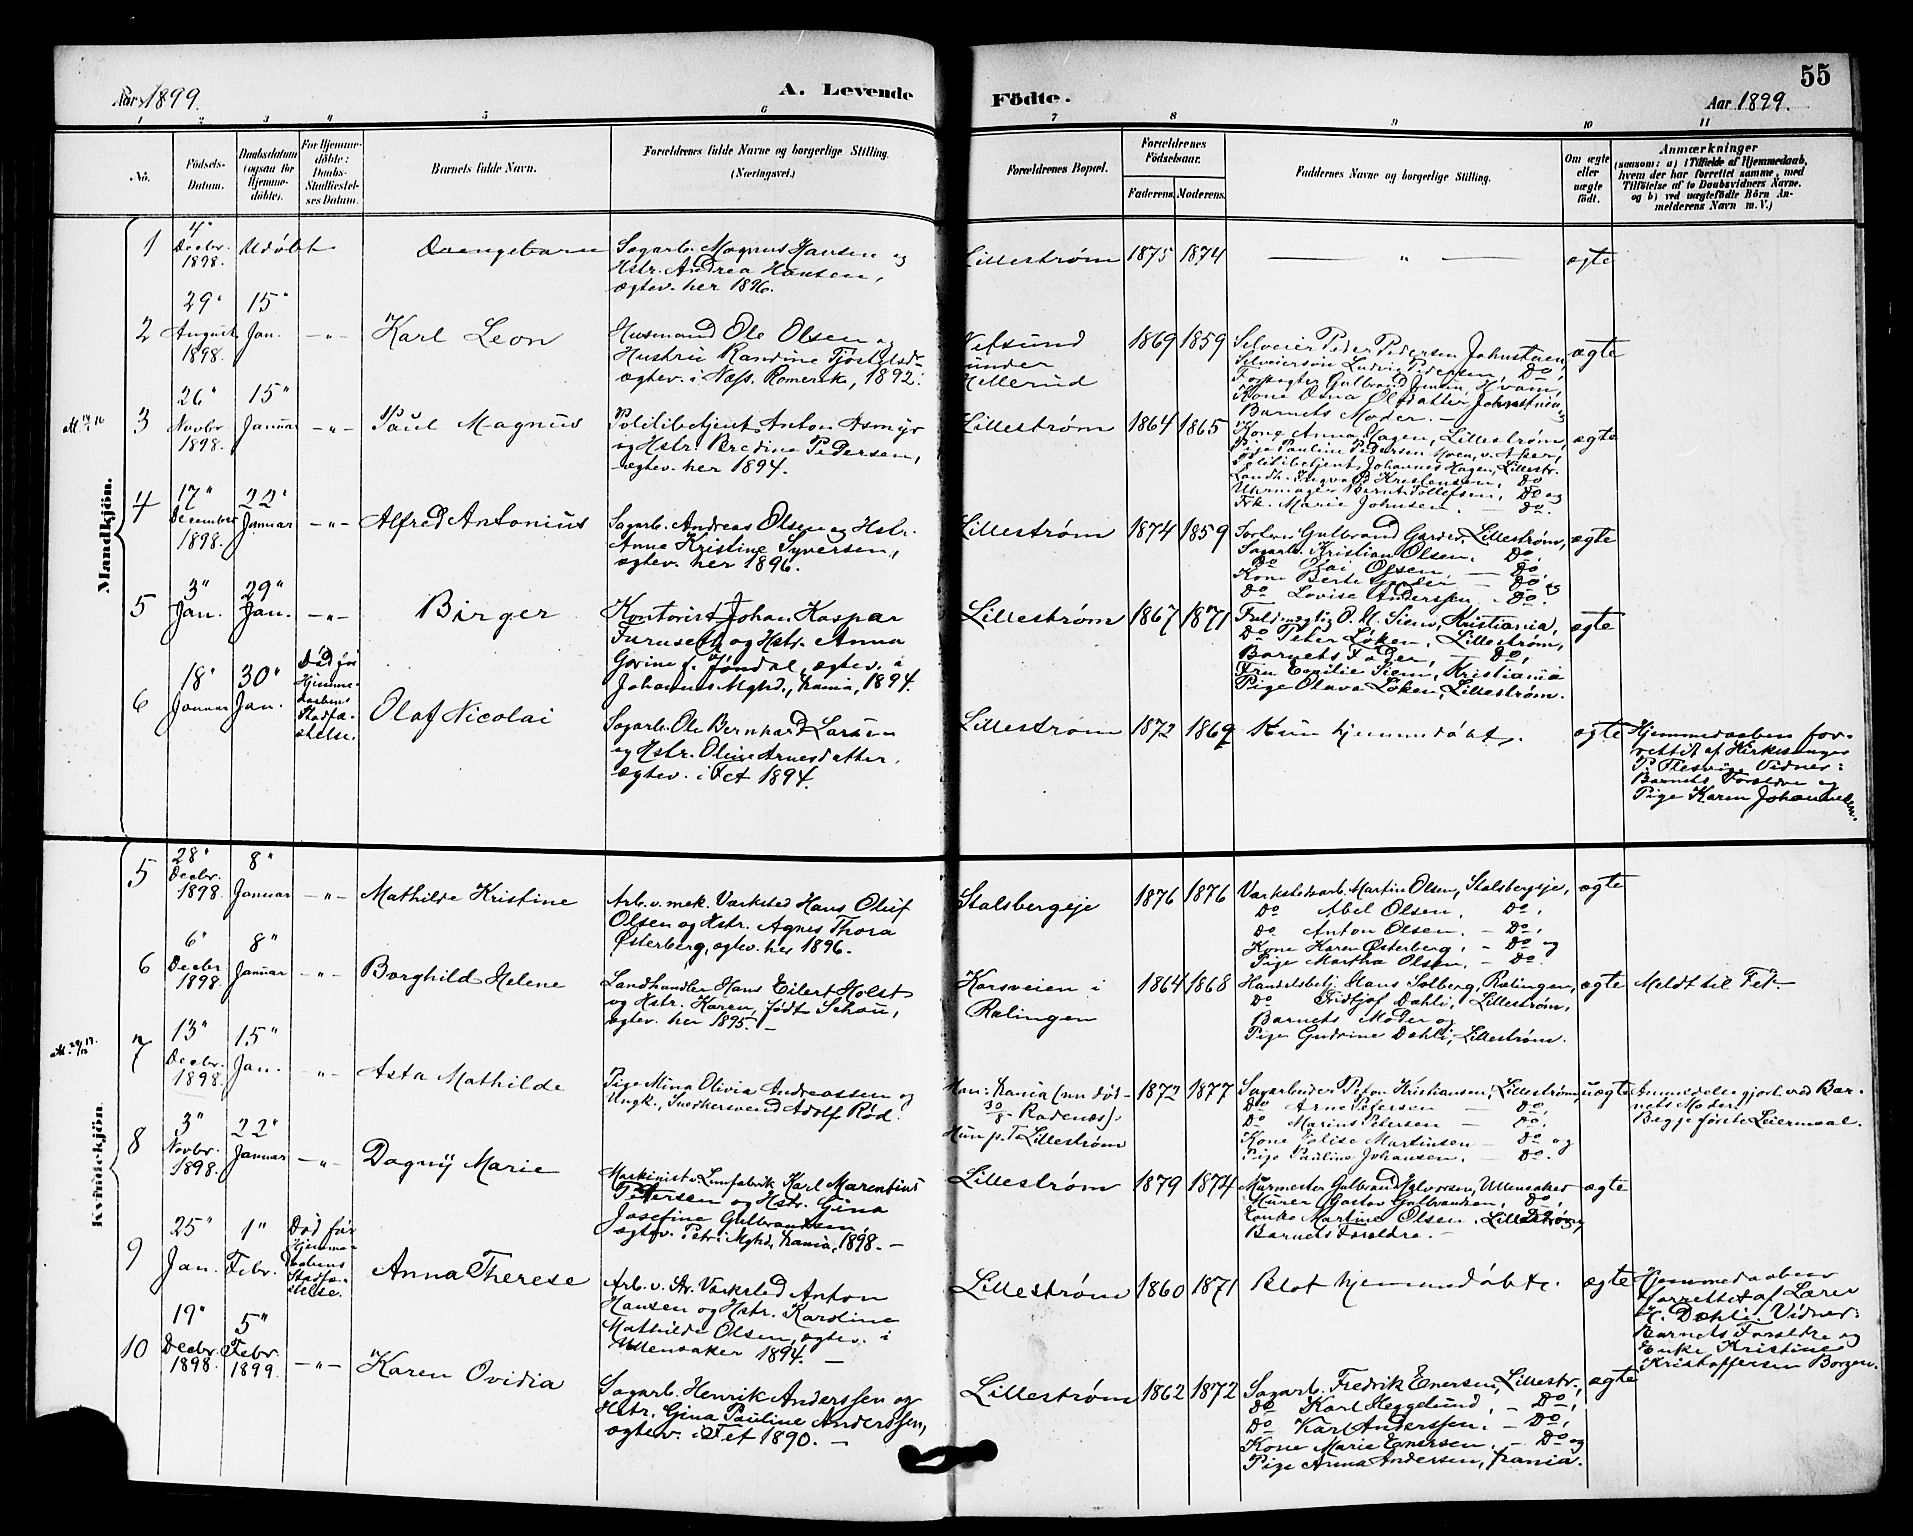 Aar 1899.
A. Levende
Födte.
55
Aar 1899.
1 2 3 4 5 6 7 8 9 10 11
No.
Födsels-
Datum.
Daabsdatum
(ogsaa for
Hjemme-
döbte).
For Hjemme-
döbte:
Daabs-
Stadfæstel-
ses Datum.
Barnets fulde Navn.
Forældrenes fulde Navne og borgerlige Stilling.
(Næringsvei.)
Forældrenes Bopæl.
Forældrenes
Födselsaar.
Faderens.
Moderens.
Faddernes Navne og borgerlige Stilling.
Om ægte
eller
uægte
födt.
Anmærkninger
(saasom: a) i Tilfælde af Hjemmedaab,
hvem der har forrettet samme, med
Tilföielse af to Daabsvidners Navne.
og b) ved uægtefödte Börn An-
melderens Navn m. V.)
Mandkjön.
1
4"
Decbr.
1898.
Udøbt
Drengebarn
Sagarb. Magnus Hansen og
Hstr. Andrea Hansen,
ægtev. her 1896.
Lillestrøm
1875
1874
— " —
ægte
2
29"
August
1898.
15"
Jan.
—"—
Karl Leon
Husmand Ole Olsen og
Hustru Randine
ægtev. i Næs. Romerike, 1892.
under
Hellerud
1869
1859
Selveier Peder Pedersen
Selveiersøn Ludvig Pedersen, Do,
Barnets Moder. —
ægte
3
26"
Novbr.
1898.
15"
Januar
—"—
Paul Magnus
Politibetjent Anton Asmyr
og Hstr. Bredine Pedersen,
ægtev. her 1894.
Lillestrøm
1864
1865
Kone Anna Hagen, Lillestrøm,
Pige Pauline Pedersen Moen, v. Aker,
Politibetjent Johannes Hagen, Lillestr.
Landh. Ingvald Kristensen, Do
Uhrmager Bernt Tollefsen, Do og
Frk. Marie Johnsen. — Do.
ægte
4
17"
December
1898.
22"
Januar
—"—
Alfred Antonius
Sagarb. Andreas Olsen og Hstr.
Anne Kristine Syversen,
ægtev. her 1896.
Lillestrøm
1874
1859
Gulbrand Garder, Lillestrøm,
Sagarb. Kristian Olsen, Do,
Do Olai Olsen — Do,
Kone Berte Garder — Do, og
Do Lovise Anderssen. Do.
ægte
5
3"
Jan.
29"
Jan.
—"—
Birger
Kontorist Johan Kaspar
Furuseth og Hstr. Anna
Gorine f. Jöndal, ægtev. i
Johannes Mghd., Krania, 1894.
Lillestrøm
1867
1871
Fuldmægtig O. M. Siem, Kristiania,
Do Peter Løken, Lillestrøm,
Barnets Fader, — Do,
Fru Emilie Siem, Kristiania
Pige Olava Løken, Lillestrøm.
ægte
6
18"
Januar
30"
Jan.
Död för
Hjemme-
daabens
Stadfæ-
stelse.
Olaf Nicolai
Sagarb. Ole Bernhard Larsen
og Hstr. Oline Arnesdatter,
ægtev. i Fet 1894.
Lillestrøm
1872
1869
Kun hjemmedöbt,.
ægte
Hjemmedaaben for-
rettet af Kirkesanger
Vidner:
Barnets Forældre og
Pige Karen Johannesen.
Kvindekjön.
5
28"
Decbr.
1898.
8"
Januar
—"—
Mathilde Kristine
Arb. v. mek. Værksted Hans Oluf
Olsen og Hstr. Agnes Thora
Østerberg, ægtev. her 1896.
Stalsbergeje
1876
1876
Værkstedsarb. Martin Olsen, Stalsbergeje,
Do Abel Olsen, Do,
Do Anton Olsen. — Do,
Kone Karen Østerberg, — Do og
Pige Martha Olsen, — Do.
ægte
6
6"
Decbr
1898.
8"
Januar
—"—
Borghild Helene
Landhandler Hans Eilert Holst
og Hstr. Karen, født Schou,
ægtev. her 1895. —
Korsveien i
Rælingen
1864
1868
Handelsbetj. Hans Solberg, Rælingen,
Do Fridtjof Dæhli, Lillestrøm,
Barnets Moder og
Pige Gudrine Dæhli, Lillestrøm.
ægte
Meldt til Fet —
7
13"
Decbr.
1898.
15"
Jan.
—"—
Asta Mathilde
Pige Mina Olivia Andreassen og
Ungk., Snedkersvend Adolf Rød.
Han: Krania (nu död
Hun p. T. Lillestrøm
1872
1877
Sagarbeider Peter Kristiansen, Lillestrøm
Do Arne Petersen — Do,
Do Marius Petersen — Do,
Kone Elise Martinsen — Do og
Pige Pauline Johansen, — Do.
uægte
Anmeldelse gjort ved Bar-
nets Moder.
Begge förste Leiermaal.
8
3"
Novbr.
1898.
22"
Januar
—"—
Dagny Marie
Maskinist v. Limfabrik Karl Marentius
Petersen og Hstr. Gina
Josefine Gulbrandsen,
ægtev. Petri Mghd., Krania, 1898. —
Lillestrøm
1879
1874
Murmester Gulbrand Halvorsen, Ullensaker
Murer Gustav Gulbrandsen, Do,
Enke Martine Olsen, Lillestrøm,
Barnets Forældre. —
ægte
9
25"
Jan.
1"
Febr.
Död för
Hjemme-
daabens
Stadfæ-
stelse.
Anna Therese
Arb. v. Str. Værksted Anton
Hansen og Hstr. Karoline
Mathilde Olsen, ægtev. i
Ullensaker 1894. —
Lillestrøm
1860
1871
Blot hjemmedöbt.
ægte
Hjemmedaaben
forrettet af Lærer
H. Dæhli. Vidner:
Barnets Forældre og
Enke Kristine
Kristoffersen Borgen.
10
19"
Decbr.
1898.
5"
Febr
1899.
—"—
Karen Ovidia
Sagarb. Henrik Anderssen og
Hstr. Gina Pauline Anderssen,
ægtev. i Fet 1890. —
Lillestrøm
1862
1872
Sagarb. Fredrik Enersen, Lillestr.,
Do Karl Heggelund, — Do,
Do Karl Anderssen, — Do,
Kone Marie Enersen. — Do og
Pige Anna Andersen, Krania.
ægte